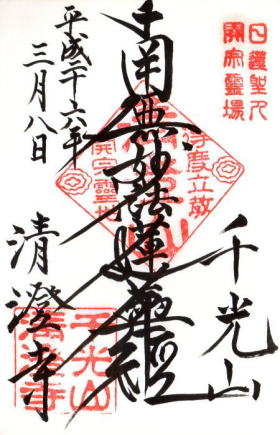 日蓮聖人
開宗霊場
千光山
南無妙法蓮華経
清澄寺
平成二十六年
三月八日
千光山
清澄寺